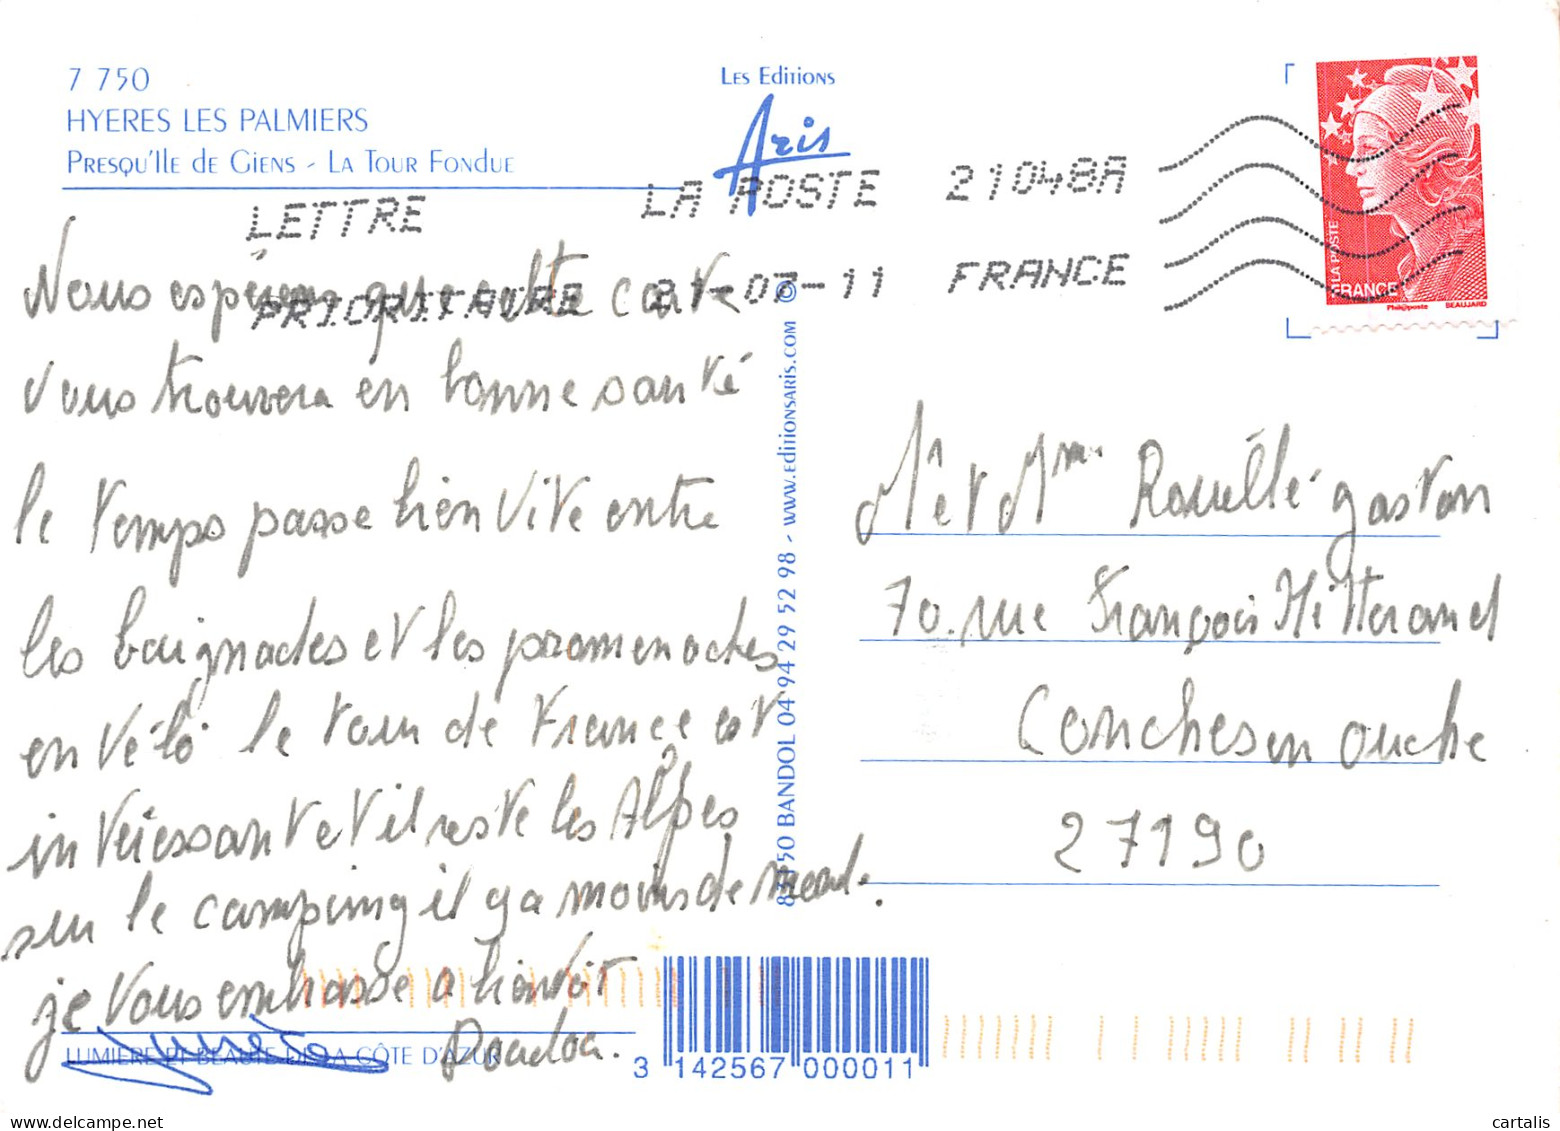 7 750
HYERES LES PALMIERS
Presqu'Ile de Giens - La Tour Fondue
Les Editions
Aris
LETTRE
PRIORITAIRE
LA POSTE 21048A
21-07-11 FRANCE
LA POSTE
FRANCE
Phil@poste
BEAUJARD
Nous espérons que cette carte
vous trouvera en bonne santé
le temps passe bien vite entre
les baignades et les promenades
en vélo le tour de France est
intéressant et il reste les Alpes
sur le camping il y a moins de mond.
je vous embrasse a bientôt
Doudou.
M et Mme Rouillé gaston
70. rue François Mitterand
Conches en ouche
27190
83150 BANDOL 04 94 29 52 98 - www.editionsaris.com ©
LUMIERE ET BEAUTE DE LA CÔTE D'AZUR
3 142567 000011
cartalis